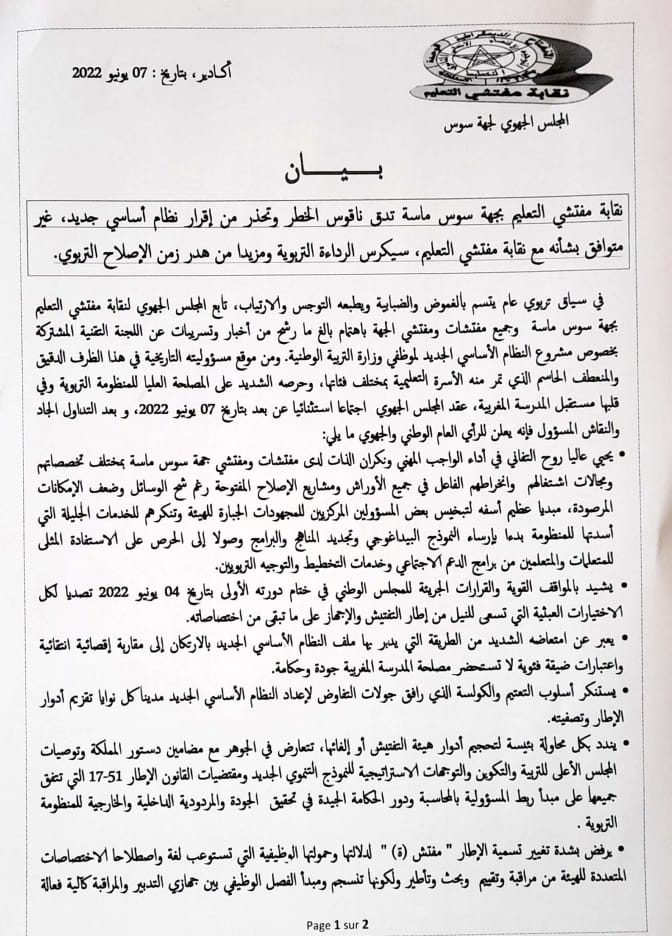 نقابة مفتشي التعليم
أكادير، بتاريخ : 07 يونيو 2022
المجلس الجهوي لجهة سوس
بـيـــان
نقابة مفتشي التعليم بجهة سوس ماسة تدق ناقوس الخطر وتحذر من إقرار نظام أساسي جديد، غير
متوافق بشأنه مع نقابة مفتشي التعليم، سيكرس الرداءة التربوية ومزيدا من هدر زمن الإصلاح التربوي.
في سياق تربوي عام يتسم بالغموض والضبابية ويطبعه التوجس والارتياب، تابع المجلس الجهوي لنقابة مفتشي التعليم
بجهة سوس ماسة وجميع مفتشات ومفتشي الجهة باهتمام بالغ ما رشح من أخبار وتسريبات عن اللجنة التقنية المشتركة
بخصوص مشروع النظام الأساسي الجديد لموظفي وزارة التربية الوطنية. ومن موقع مسؤوليته التاريخية في هذا الظرف الدقيق
والمنعطف الحاسم الذي تمر منه الأسرة التعليمية بمختلف فئاتها، وحرصه الشديد على المصلحة العليا للمنظومة التربوية وفي
قلبها مستقبل المدرسة المغربية، عقد المجلس الجهوي اجتماعا استثنائيا عن بعد بتاريخ 07 يونيو 2022، و بعد التداول الجاد
والنقاش المسؤول فإنه يعلن للرأي العام الوطني والجهوي ما يلي:
• يحيي عاليا روح التفاني في أداء الواجب المهني ونكران الذات لدى مفتشات ومفتشي جهة سوس ماسة بمختلف تخصصاتهم
ومجالات اشتغالهم وانخراطهم الفاعل في جميع الأوراش ومشاريع الإصلاح المفتوحة رغم شح الوسائل وضعف الإمكانات
المرصودة، مبديا عظيم أسفه لتبخيس بعض المسؤولين المركزيين للمجهودات الجبارة للهيئة وتنكرهم للخدمات الجليلة التي
أسدتها للمنظومة بدءا بإرساء النموذج البيداغوجي وتجديد المناهج والبرامج وصولا إلى الحرص على الاستفادة المثلى
للمتعلمات والمتعلمين من برامج الدعم الاجتماعي وخدمات التخطيط والتوجيه التربويين.
• يشيد بالمواقف القوية والقرارات الجريئة للمجلس الوطني في ختام دورته الأولى بتاريخ 04 يونيو 2022 تصديا لكل
الاختيارات العبثية التي تسعى للنيل من إطار التفتيش والإجهاز على ما تبقى من اختصاصاته.
• يعبر عن امتعاضه الشديد من الطريقة التي يدبر بها ملف النظام الأساسي الجديد بالارتكان إلى مقاربة إقصائية انتقائية
واعتبارات ضيقة فئوية لا تستحضر مصلحة المدرسة المغربية جودة وحكامة.
• يستنكر أسلوب التعتيم والكولسة الذي رافق جولات التفاوض لإعداد النظام الأساسي الجديد مدينا كل نوايا تقزيم أدوار
الإطار وتصفيته.
• يندد بكل محاولة بئيسة لتحجيم أدوار هيئة التفتيش أو إلغائها، تتعارض في الجوهر مع مضامين دستور المملكة وتوصيات
المجلس الأعلى للتربية والتكوين والتوجهات الاستراتيجية للنموذج التنموي الجديد ومقتضيات القانون الإطار 51-17 التي تتفق
جميعها على مبدأ ربط المسؤولية بالمحاسبة ودور الحكامة الجيدة في تحقيق الجودة والمردودية الداخلية والخارجية للمنظومة
التربوية .
• يرفض بشدة تغيير تسمية الإطار " مفتش (ة) " لدلالتها وحمولتها الوظيفية التي تستوعب لغة واصطلاحا الاختصاصات
المتعددة للهيئة من مراقبة وتقييم وبحث وتأطير ولكونها تنسجم ومبدأ الفصل الوظيفي بين جهازي التدبير والمراقبة كآلية فعالة
Page 1 sur 2